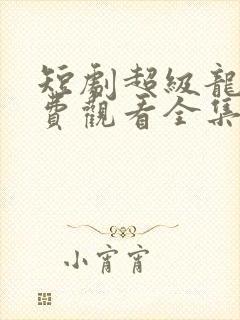 短劇超級龍
費觀看全集
小宵宵